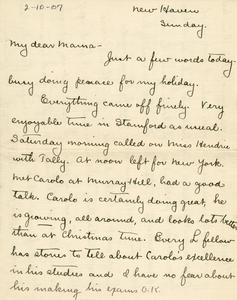 2-10-07
New Haven
Sunday.
My dear Mama-
Just a few words today-
busy doing penace for my holiday.
Everything came off finely. Very
enjoyable time in Stamford as usual.
Saturday morning called on Miss Hendrie
with Tally. At noon left for New York.
Met Carolo at Murray Hill, had a good
talk. Carolo is certainly doing great, he
is growing, all around, and looks lots better
than at Christmas time. Every L fellow
has stories to tell about Carolo's excellence
in his studies and I have no fear about
his making his exams O.K.